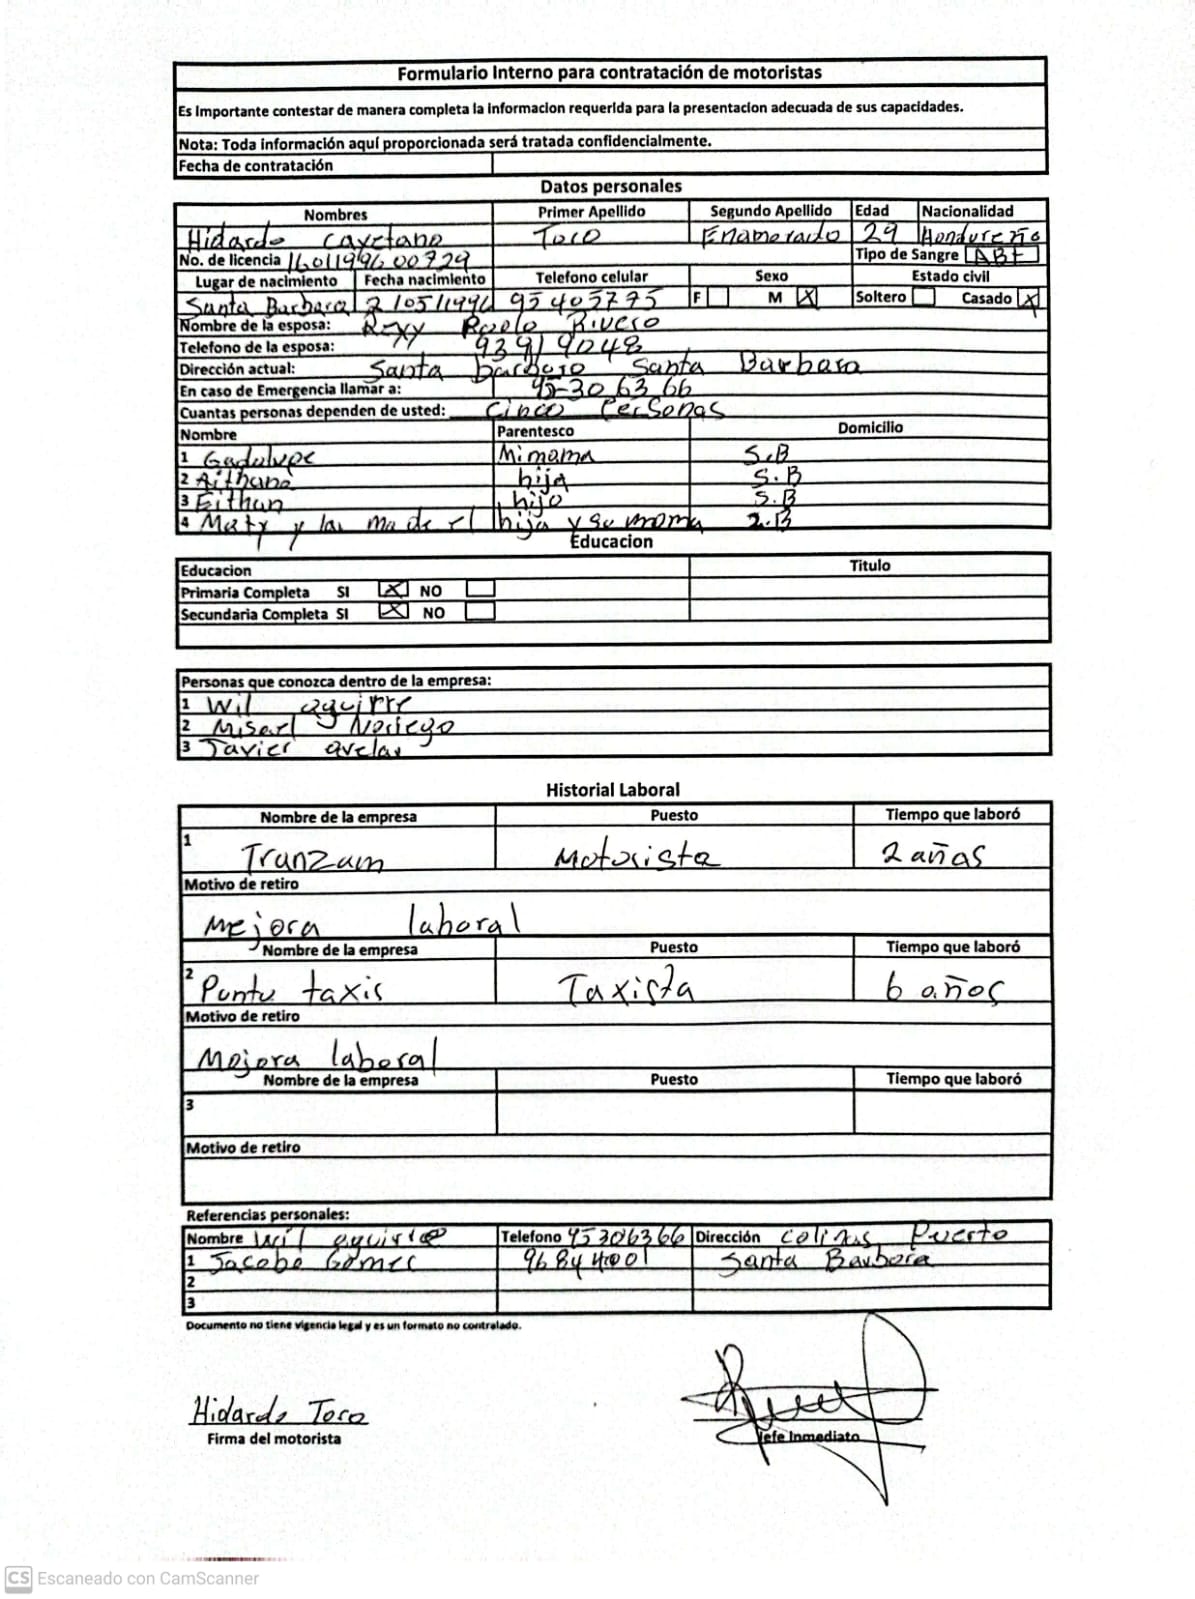 Formulario Interno para contratación de motoristas
Es Importante contestar de manera completa la informacion requerida para la presentacion adecuada de sus capacidades.
Nota: Toda información aquí proporcionada será tratada confidencialmente.
Fecha de contratación
Datos personales
Nombres Primer Apellido Segundo Apellido Edad Nacionalidad
Hidardo Cayetano Toco Enamorado 29 Hondureño
No. de licencia 1601199600729 Tipo de Sangre
Lugar de nacimiento Fecha nacimiento Telefono celular Sexo Estado civil
Santa Barbara 95405775 F M X Soltero Casado X
Nombre de la esposa: Rivero
Telefono de la esposa: 93919048
Dirección actual: Santa Santa Barbara
En caso de Emergencia llamar a: 95-306366
Cuantas personas dependen de usted: Cinco Personas
Nombre Parentesco Domicilio
1 Mi mama S.B
2 hija S.B
3 Eithan hijo S.B
4 Maty y la hija y su mama
Educacion
Educacion Titulo
Primaria Completa SI X NO
Secundaria Completa SI X NO
Personas que conozca dentro de la empresa:
1 Wil aguirre
2 Misael Noriego
3 Javier avelar
Historial Laboral
Nombre de la empresa Puesto Tiempo que laboró
1 Tranzam Motorista 2 años
Motivo de retiro
Mejora laboral
Nombre de la empresa Puesto Tiempo que laboró
2 Puntu taxis Taxista 6 años
Motivo de retiro
Mejora laboral
Nombre de la empresa Puesto Tiempo que laboró
3
Motivo de retiro
Referencias personales:
Nombre Wil aguirre Telefono 95306366 Dirección colinas Puerto
1 Jacobo Gomez 96844001 Santa Barbora
2
3
Documento no tiene vigencia legal y es un formato no controlado.
Hidardo Toco
Firma del motorista Jefe Inmediato
CS Escaneado con CamScanner